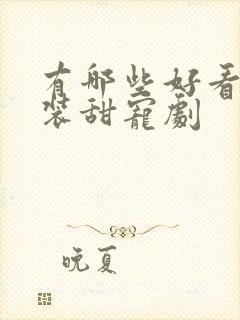 有哪些好看
装甜宠剧
晚夏